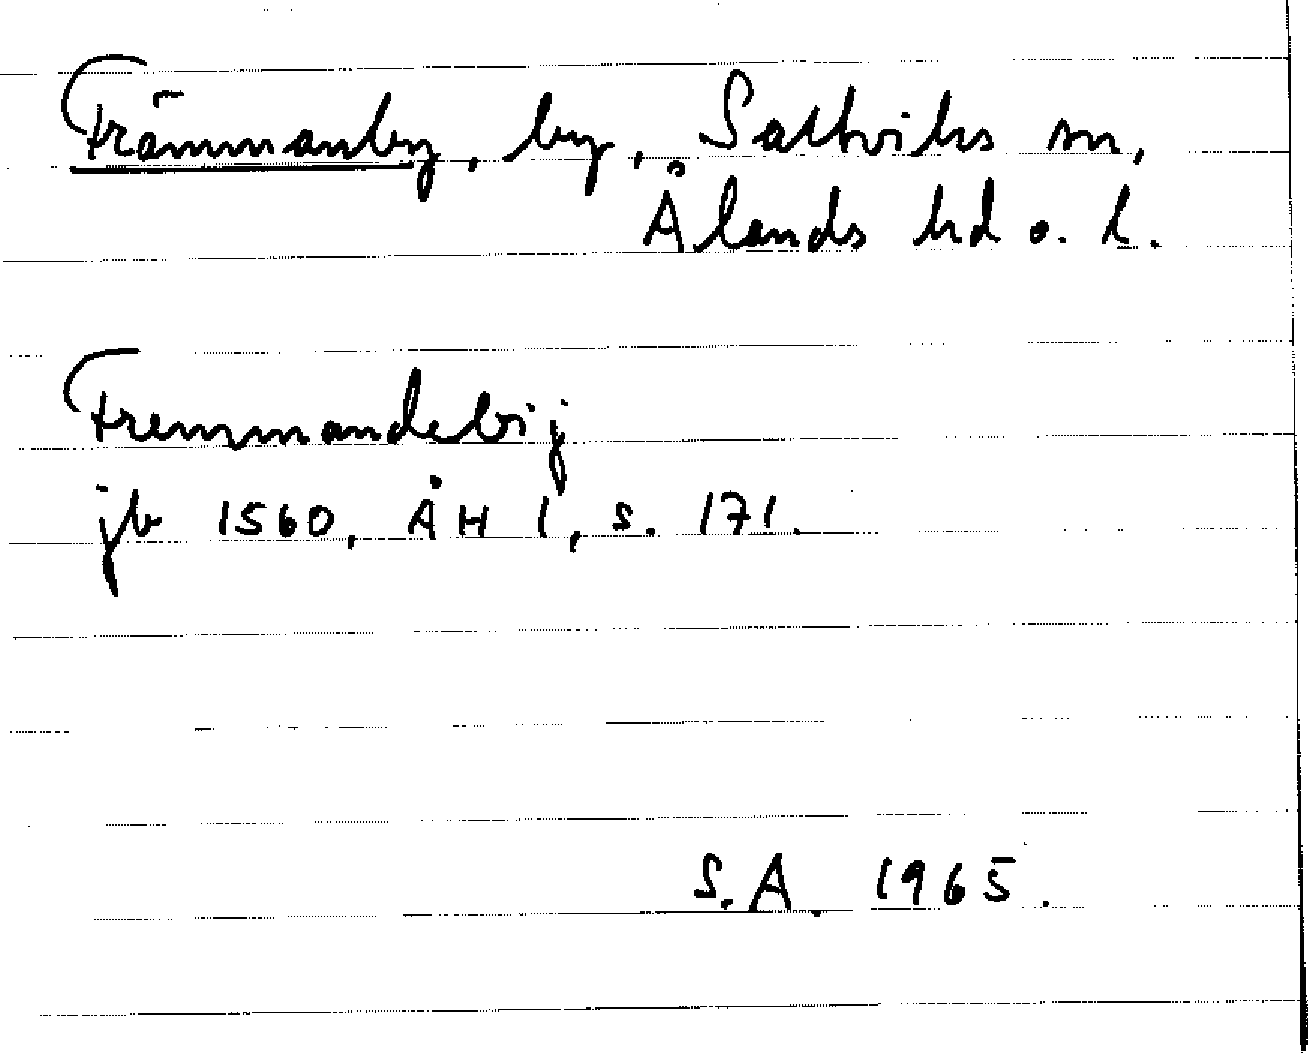 Främmanby, by, Saltviks sn,
Ålands hd o. l.
Fremmandebij
jb 1560, ÅH I, s. 171.
S.A. 1965.